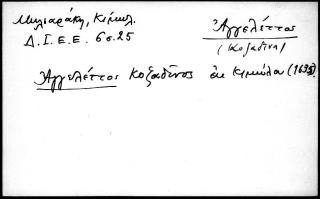 Μηλιαράκη, Κίμωλ.
Δ.Ι.Ε.Ε. 6σ.25
Ἀγγελέττος
(Κοζαδίνη)
Ἀγγελέττος Κοζαδῖνος ἐκ Κιμώλου